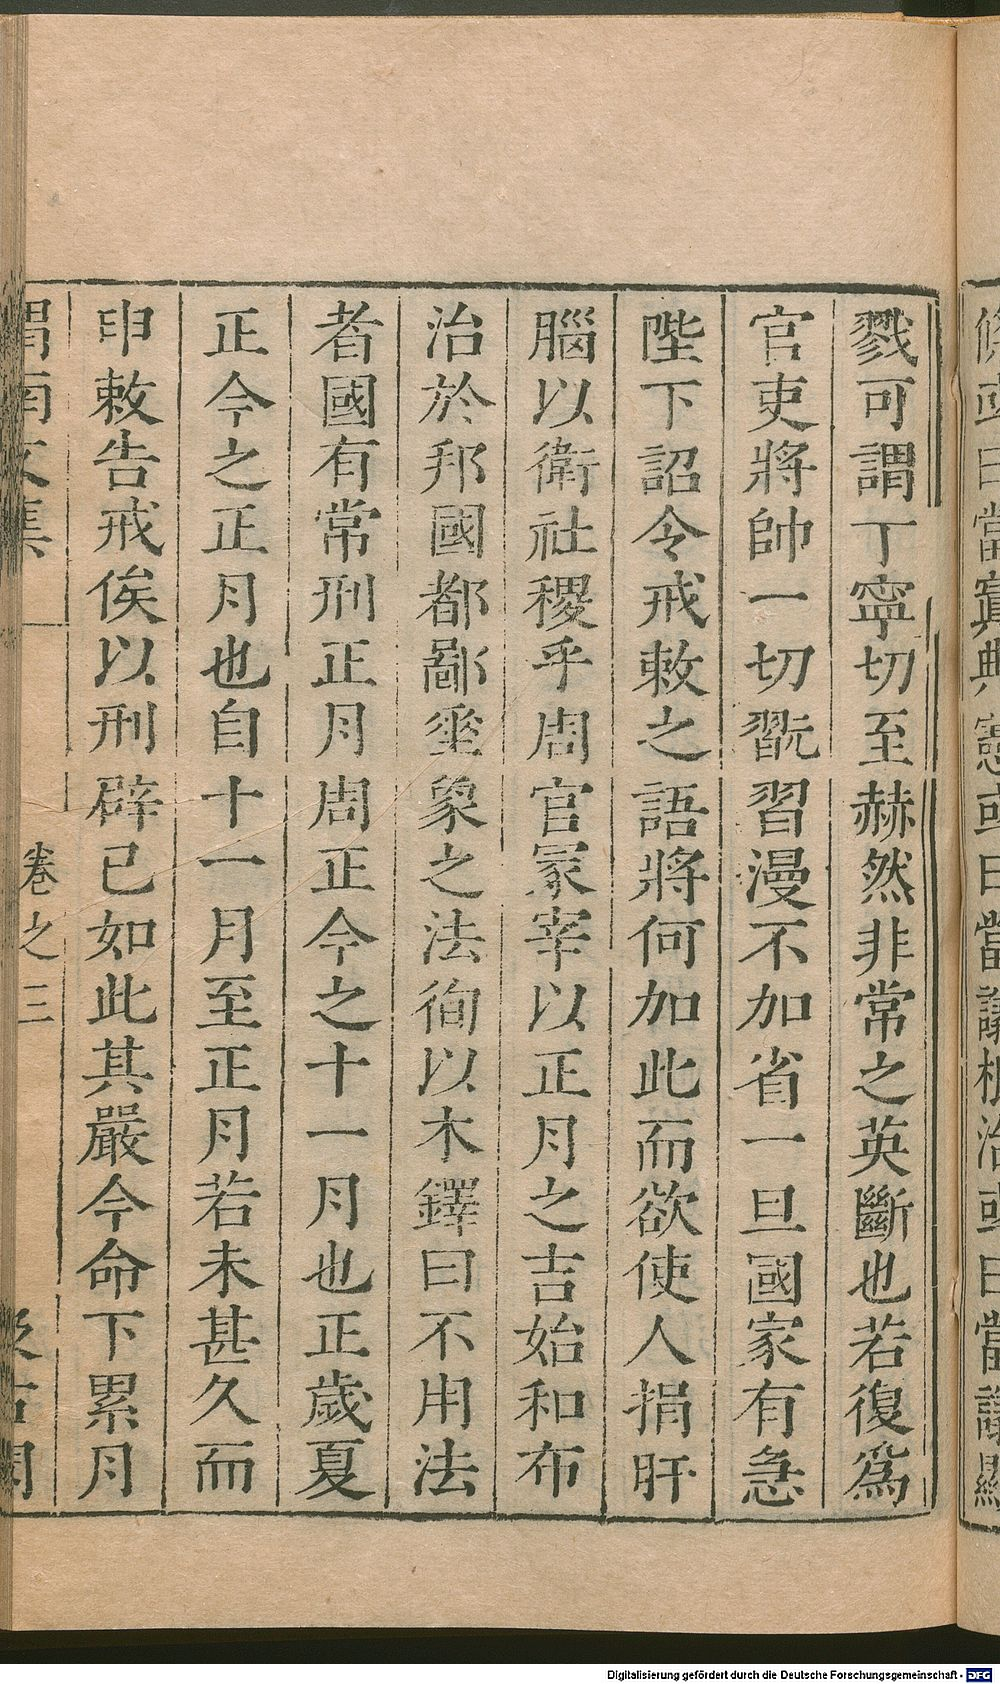 戮可謂丁寧切至赫然非常之英斷也若復爲
官吏將帥一切翫習漫不加省一旦國家有急
陛下詔令戒敕之語將何加此而欲使人捐肝
腦以衛社稷乎周官冢宰以正月之吉始和布
治於邦國都鄙垂象之法徇以木鐸曰不用法
者國有常刑正月周正今之十一月也正歲夏
正今之正月也自十一月至正月若未甚久而
申敕告戒俟以刑辟已如此其嚴今命下累月
渭南文集 卷之三 汲古閣
Digitalisierung gefördert durch die Deutsche Forschungsgemeinschaft - DFG